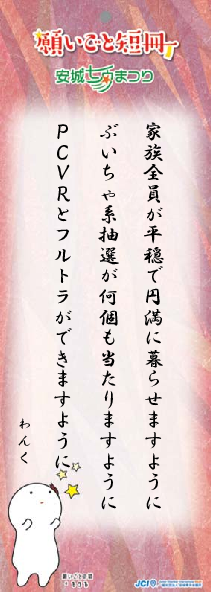 願いごと短冊
安城七夕まつり
家族全員が平穏で円満に暮らせますように
ぶいちゃ系抽選が何個も当たりますように
PCVRとフルトラができますように
わんく
願いごとの国
JCI